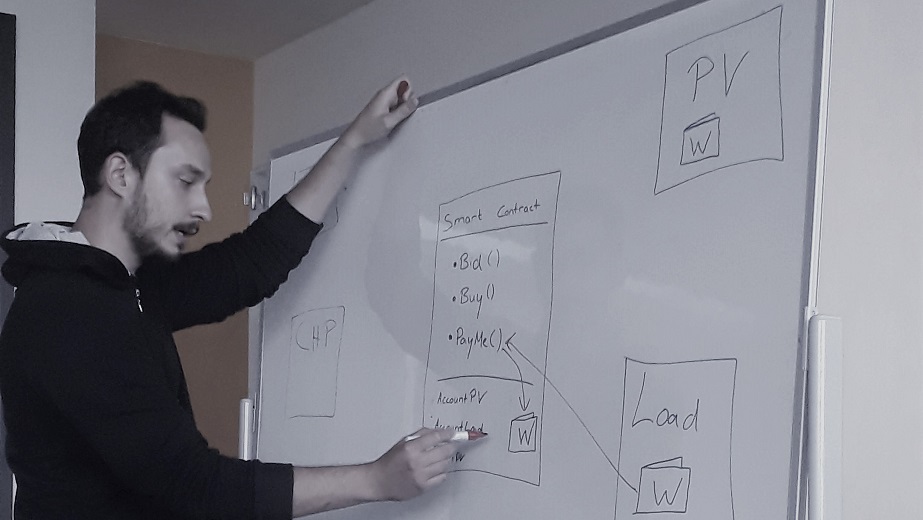 PV
W
Smart Contract
•Bid()
•Buy()
•PayMe()
CHP
AccountPV
AccountLoad
W
Load
W